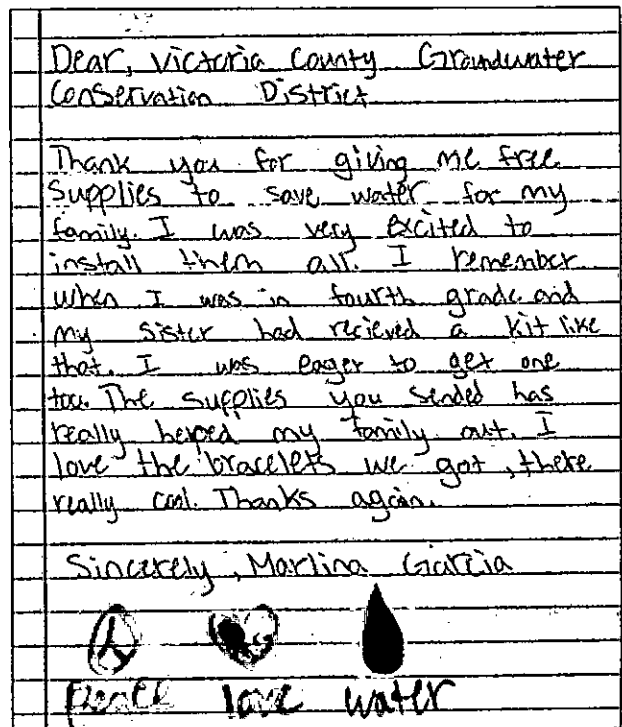 Dear, Victoria County Groundwater
Conservation District
Thank you for giving me free
Supplies to save water for my
family. I was very excited to
install them all. I remember
when I was in fourth grade and
my sister had recieved a kit like
that. I was eager to get one
too. The supplies you sended has
really helped my family out. I
love the bracelets we got, there
really cool. Thanks again.
Sincerely, Marlina Garcia
Peace love water